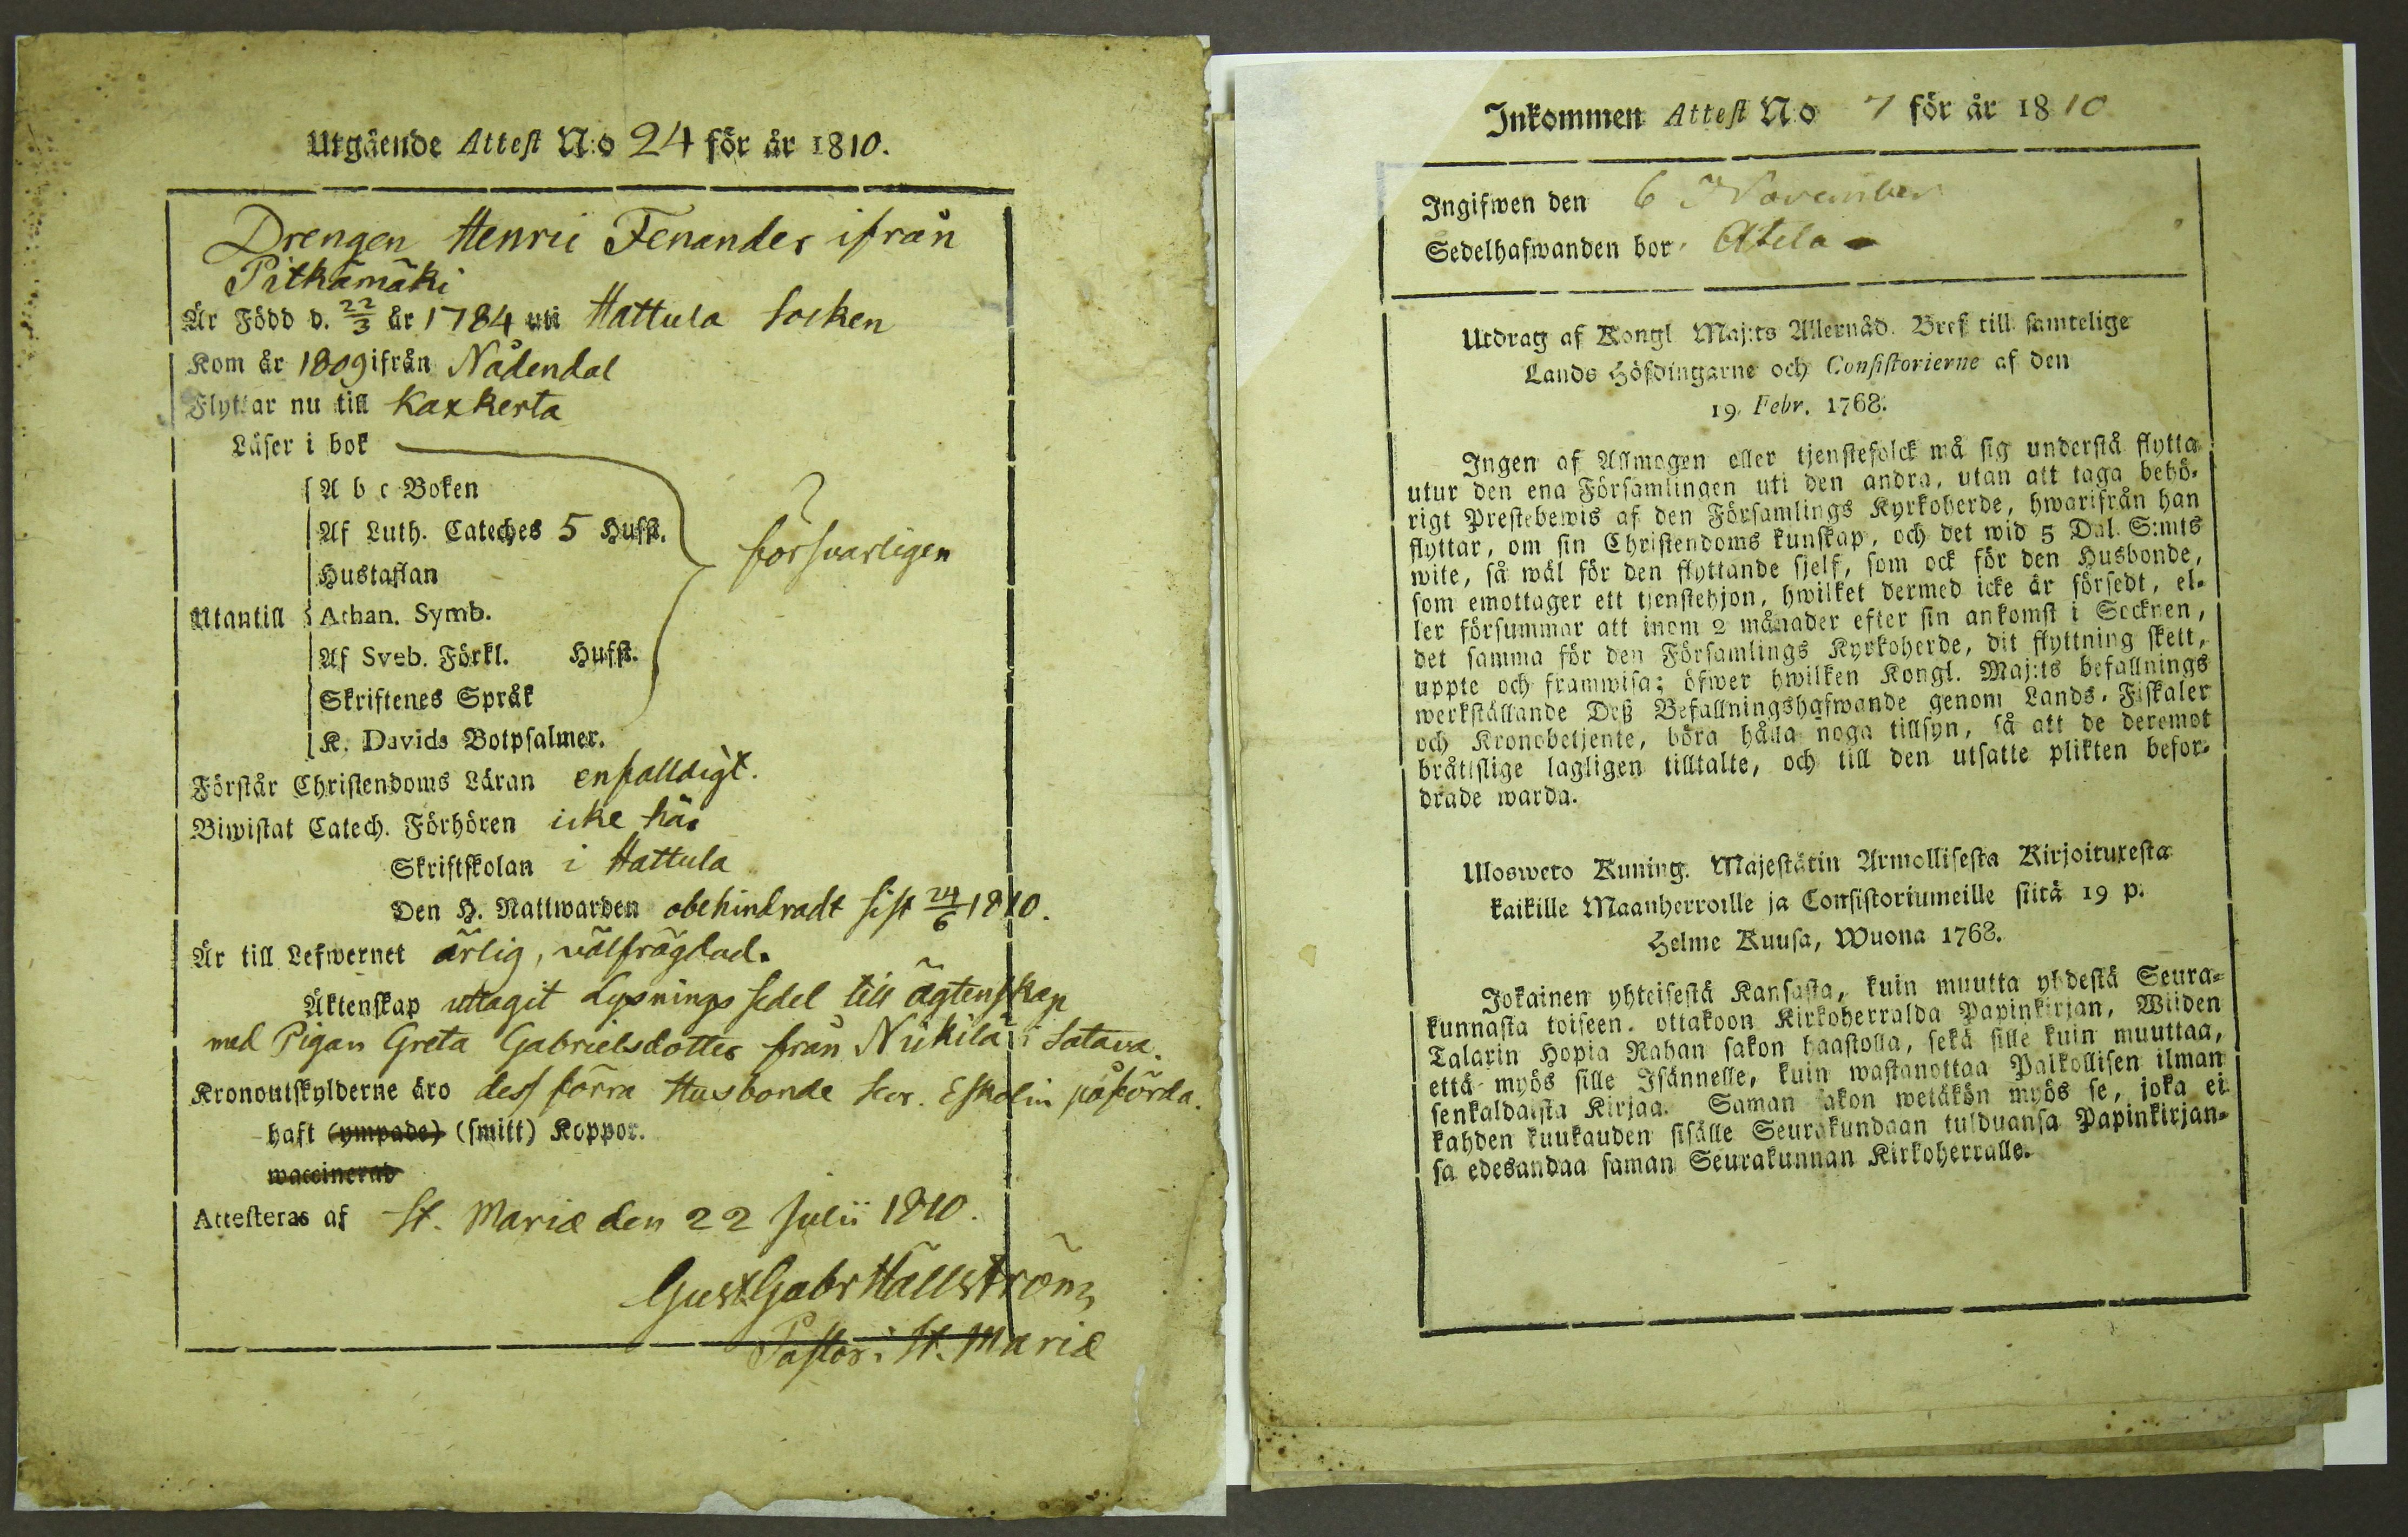 Utgående Attest N:o 24 för år 1810.
Drengen Henric Fenander ifrån
Pitkämäki
Är Född d. 22/3 år 1784 uti Hattula Socken
Kom år 1809 ifrån Nådendal
Flyttar nu till Kaxkerta
Läser i bok
A b c Boken
Af Luth. Cateches 5 Hufst.
försvarligen
Hustaflan
Utantill Athan. Symb.
Af Sveb. Förkl. Hufst.
Skriftenes Språk
K. Davids Botpsalmer.
Förstår Christendoms Läran enfalldigt.
Biwistat Catech. Förhören icke här
Skriftskolan i Hattula
Den H. Nattwarden obehindradt sist 24/6 1810.
Är till Lefwernet ärlig, välfrägdad.
Äktenskap uttagit Lysnings sedel till ägtenskap
med Pigan Greta Gabrielsdotter från Niikilä i Satava.
Kronoutskylderne äro dess förra Husbonde Eskolin påförda.
haft (ympade) (smitt) Koppor.
waccinerad
Attesteras af St. Mariæ den 22 Julii 1810.
Gust. Gabr Hällström
Pastor i St. Mariæ
Inkommen Attest N:o 7 för år 1810
Ingifwen den 6 November
Sedelhafwanden bor Atila
Utdrag af Kongl Maj:ts Allernåd. Bref till samtelige
Lands Höfdingarne och Consistorierne af den
19. Febr. 1768.
Ingen af Allmogen eller tjenstefolck må sig understå flytta
utur den ena Församlingen uti den andra, utan att taga behö-
rigt Prestebewis af den Församlings Kyrkoherde, hwarifrån han
flyttar, om sin Christendoms kunskap, och det wid 5 Dal. S:mts
wite, så wäl för den flyttande sjelf, som ock för den Husbonde,
som emottager ett tjenstehjon, hwilket dermed icke är försedt, el-
ler försummar att inom 2 månader efter sin ankomst i Socknen,
det samma för den Församlings Kyrkoherde, dit flyttning skett,
uppte och framwisa; öfwer hwilken Kongl. Maj:ts befallnings
werkställande Deß Befallningshafwande genom Lands-Fiskaler
och Kronobetjente, böra hålla noga tillsyn, så att de deremot
bråttslige lagligen tilltalte, och till den utsatte plikten befor-
drade warda.
Uloswero Kuning. Majestätin Armollisesta Kirjoituxesta
kaikille Maanherroille ja Consistoriumeille siitä 19 p.
Helme Kuusa, Wuona 1768.
Jokainen yhteisestä Kansasta, kuin muutta yhdestä Seura-
kunnasta toiseen. ottakoon Kirkoherralda Papinkirjan, Wiiden
Talarin Hopia Rahan sakon haastolla, sekä sille kuin muuttaa,
että myös sille Isännelle, kuin wastanottaa Palkollisen ilman
senkaldaista Kirjaa. Saman sakon wetäkön myös se, joka ei
kahden kuukauden sisälle Seurakundaan tulduansa Papinkirjan-
sa edesandaa saman Seurakunnan Kirkoherralle.